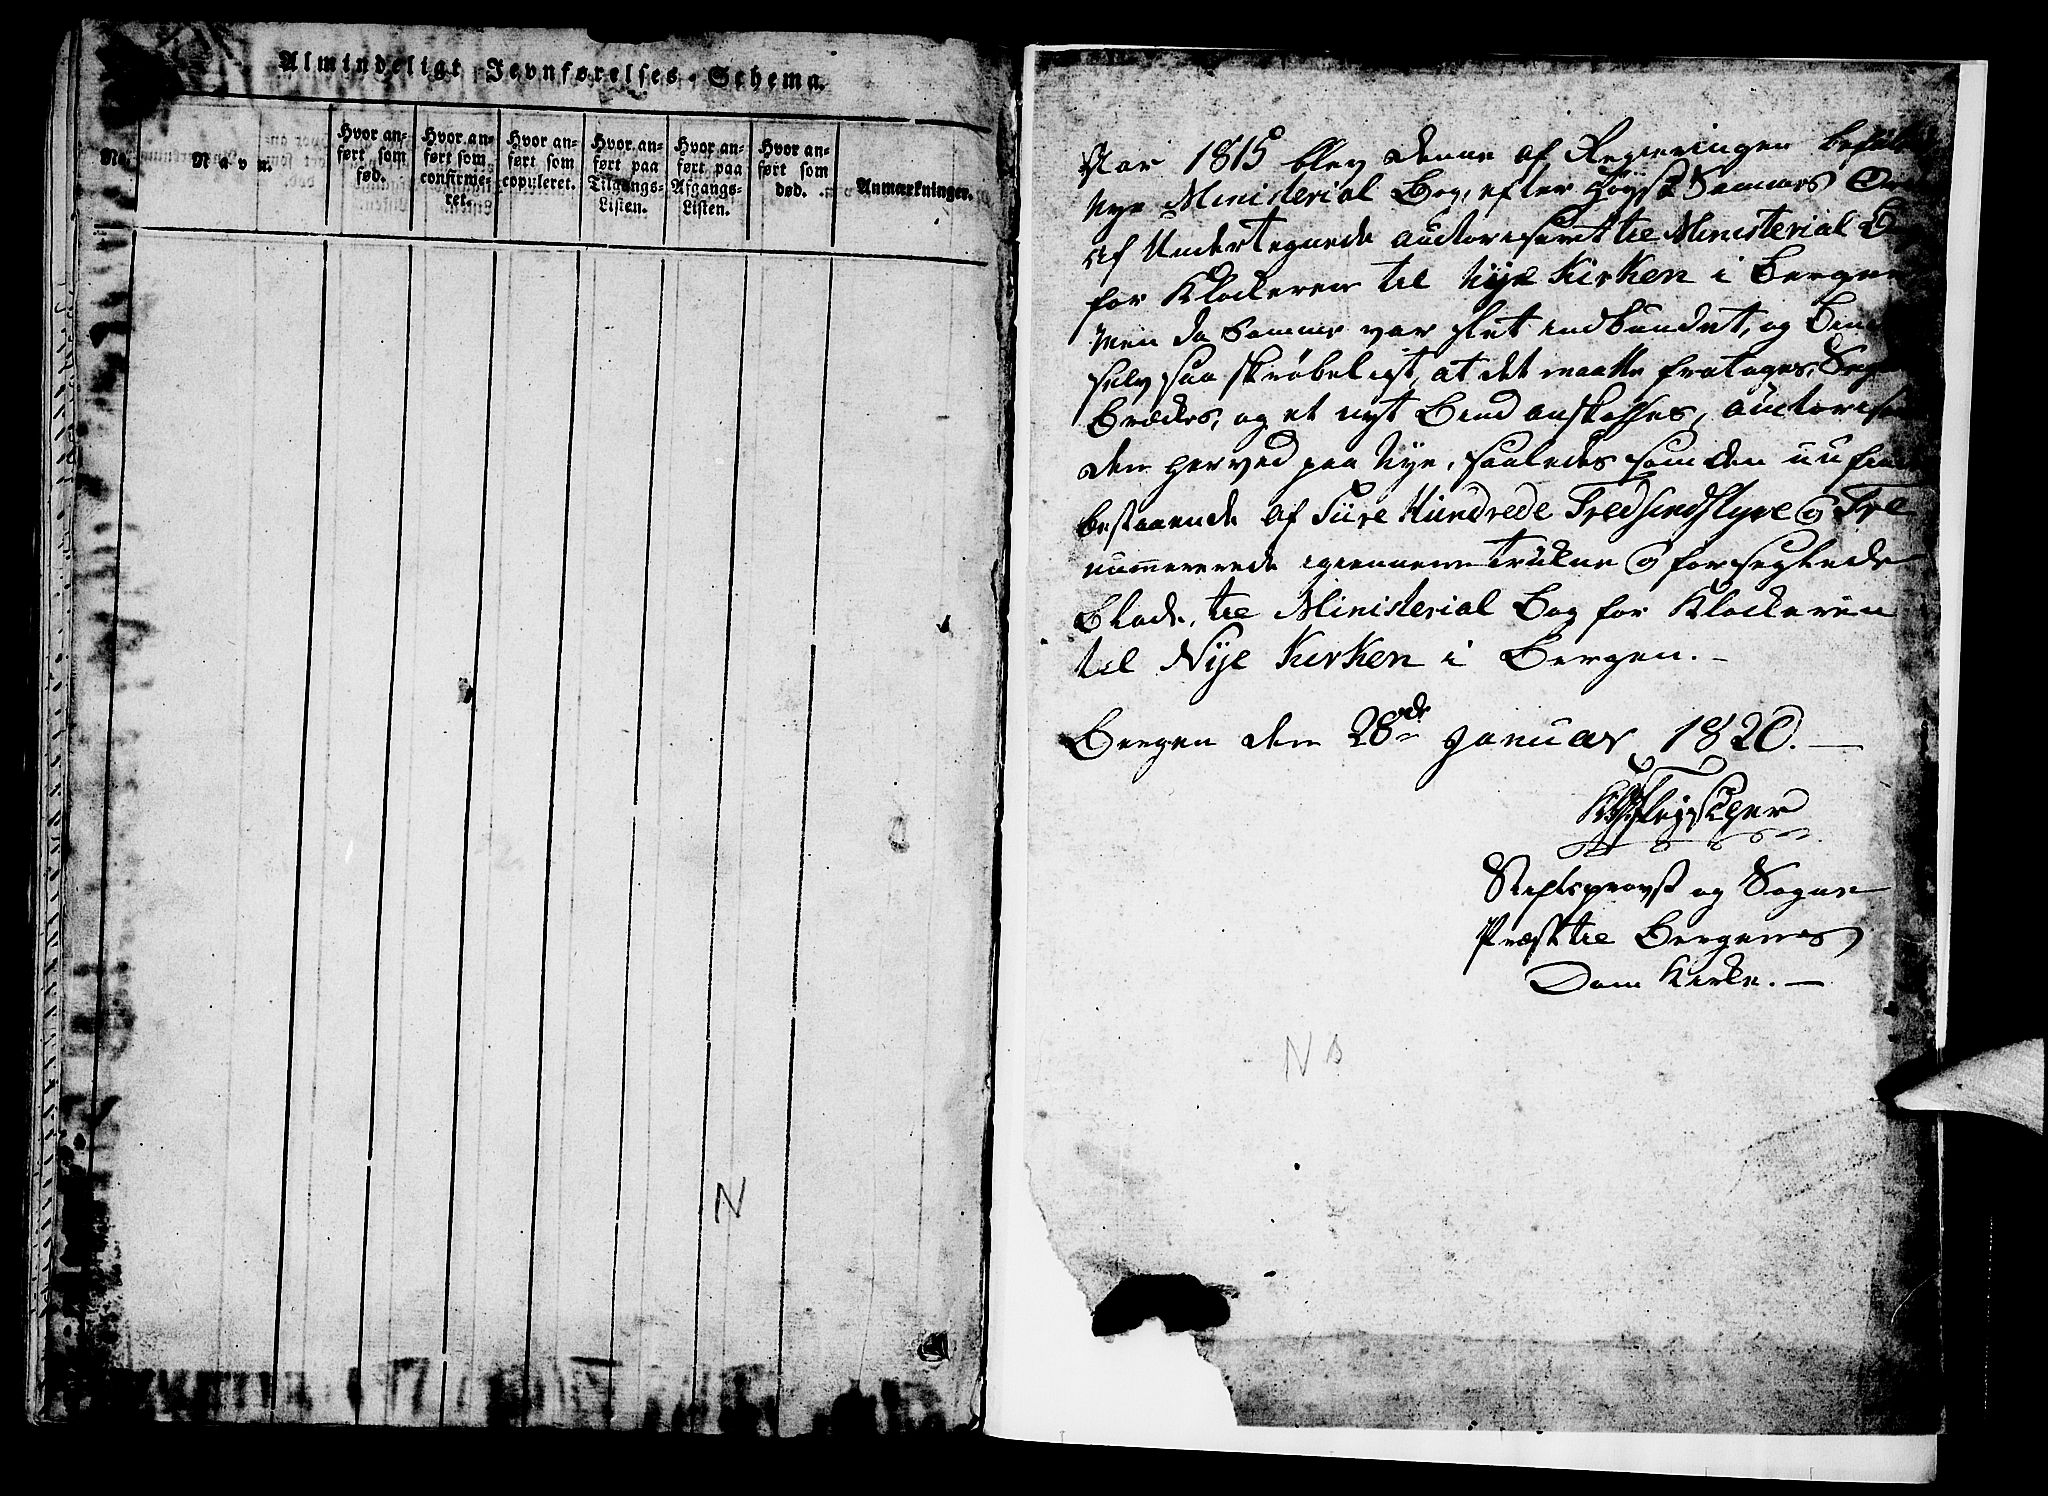 Almindeligt Jevnførelses-Schema.
No. Navn. Hvor anført som fød. Hvor anført som confirmeret. Hvor anført som copuleret. Hvor anført paa Tilgangs-Listen. Hvor anført paa Afgangs-Listen. Hvor anført som død. Anmærkninger.
N
Aar 1815 blev denne af Regieringen befalede
nye Ministerial Bog, efter høyst Sammes
af Undertegnede authoriseret til Ministerial
for Klokkeren til Nye Kirken i Bergen
Men da Samme var slet indbundet, og
selv saa skrøbeligt, at det maatte fratages,
Brædes, og et nyt Bind anskaffes,
den herved paa Nye, saaledes som den nu
bestaaende af Fiire Hundrede Tredsindstyve og Tre
numererede igiennemtrukne og forseglede
Blade, til Ministerial Bog for Klokkeren
til Nye Kirken i Bergen.
Bergen den 28de Januar 1820.
Stiftsprovst og Sogne
Præst til Bergens
Dom Kirke.